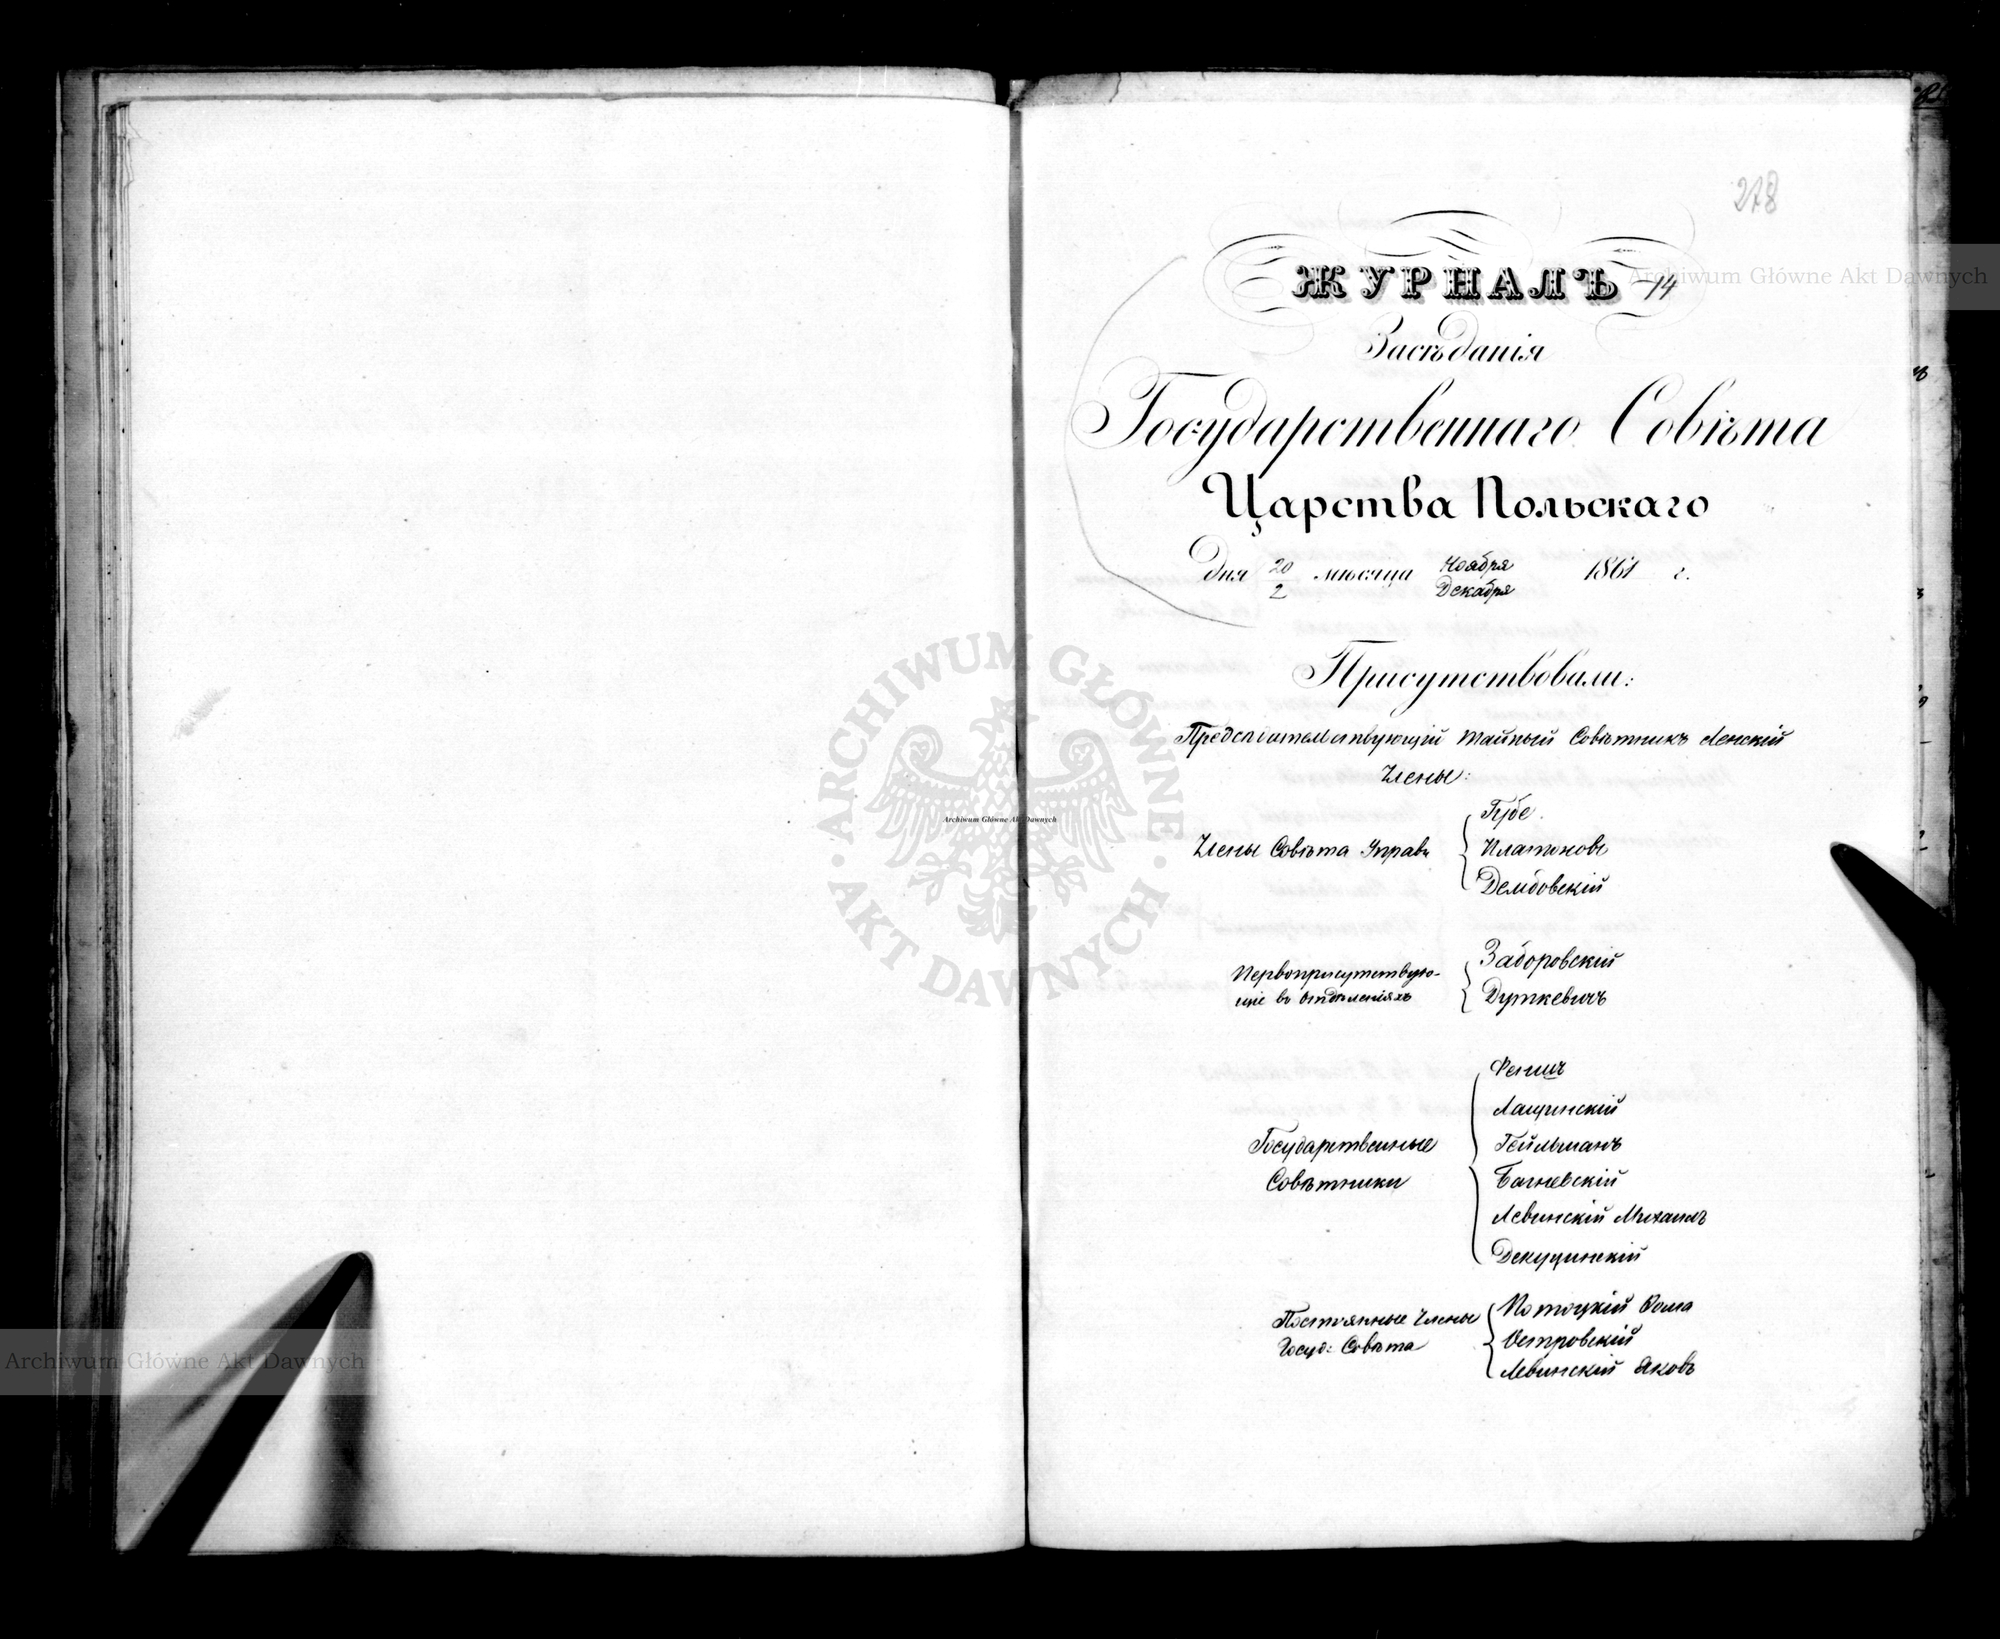 278
ЖУРНАЛЪ 14
Засѣданія
Государственнаго Совѣта
Царства Польскаго
дня 20/2 мѣсяца Ноября/Декабря 1861 г.
Присутствовали:
Предсѣдательствующій Тайный Совѣтникъ Ленскій
Члены:
Губе.
Члены Совѣта Управ:
Платоновъ
Дембовскій
Заборовскій
Первоприсутствую-
щіе въ Отдѣленіяхъ
Дуткевичъ
Феншъ
Лащинскій
Государственные
Гейльманъ
Совѣтники
Багневскій
Левинскій Михаилъ
Декуцинскій
Постоянные Члены
Потоцкій Ѳома
Госуд: Совѣта
Островскій
Левинскій Яковъ
Archiwum Główne Akt Dawnych
ARCHIWUM GŁÓWNE AKT DAWNYCH
Archiwum Główne Akt Dawnych
Archiwum Główne Akt Dawnych